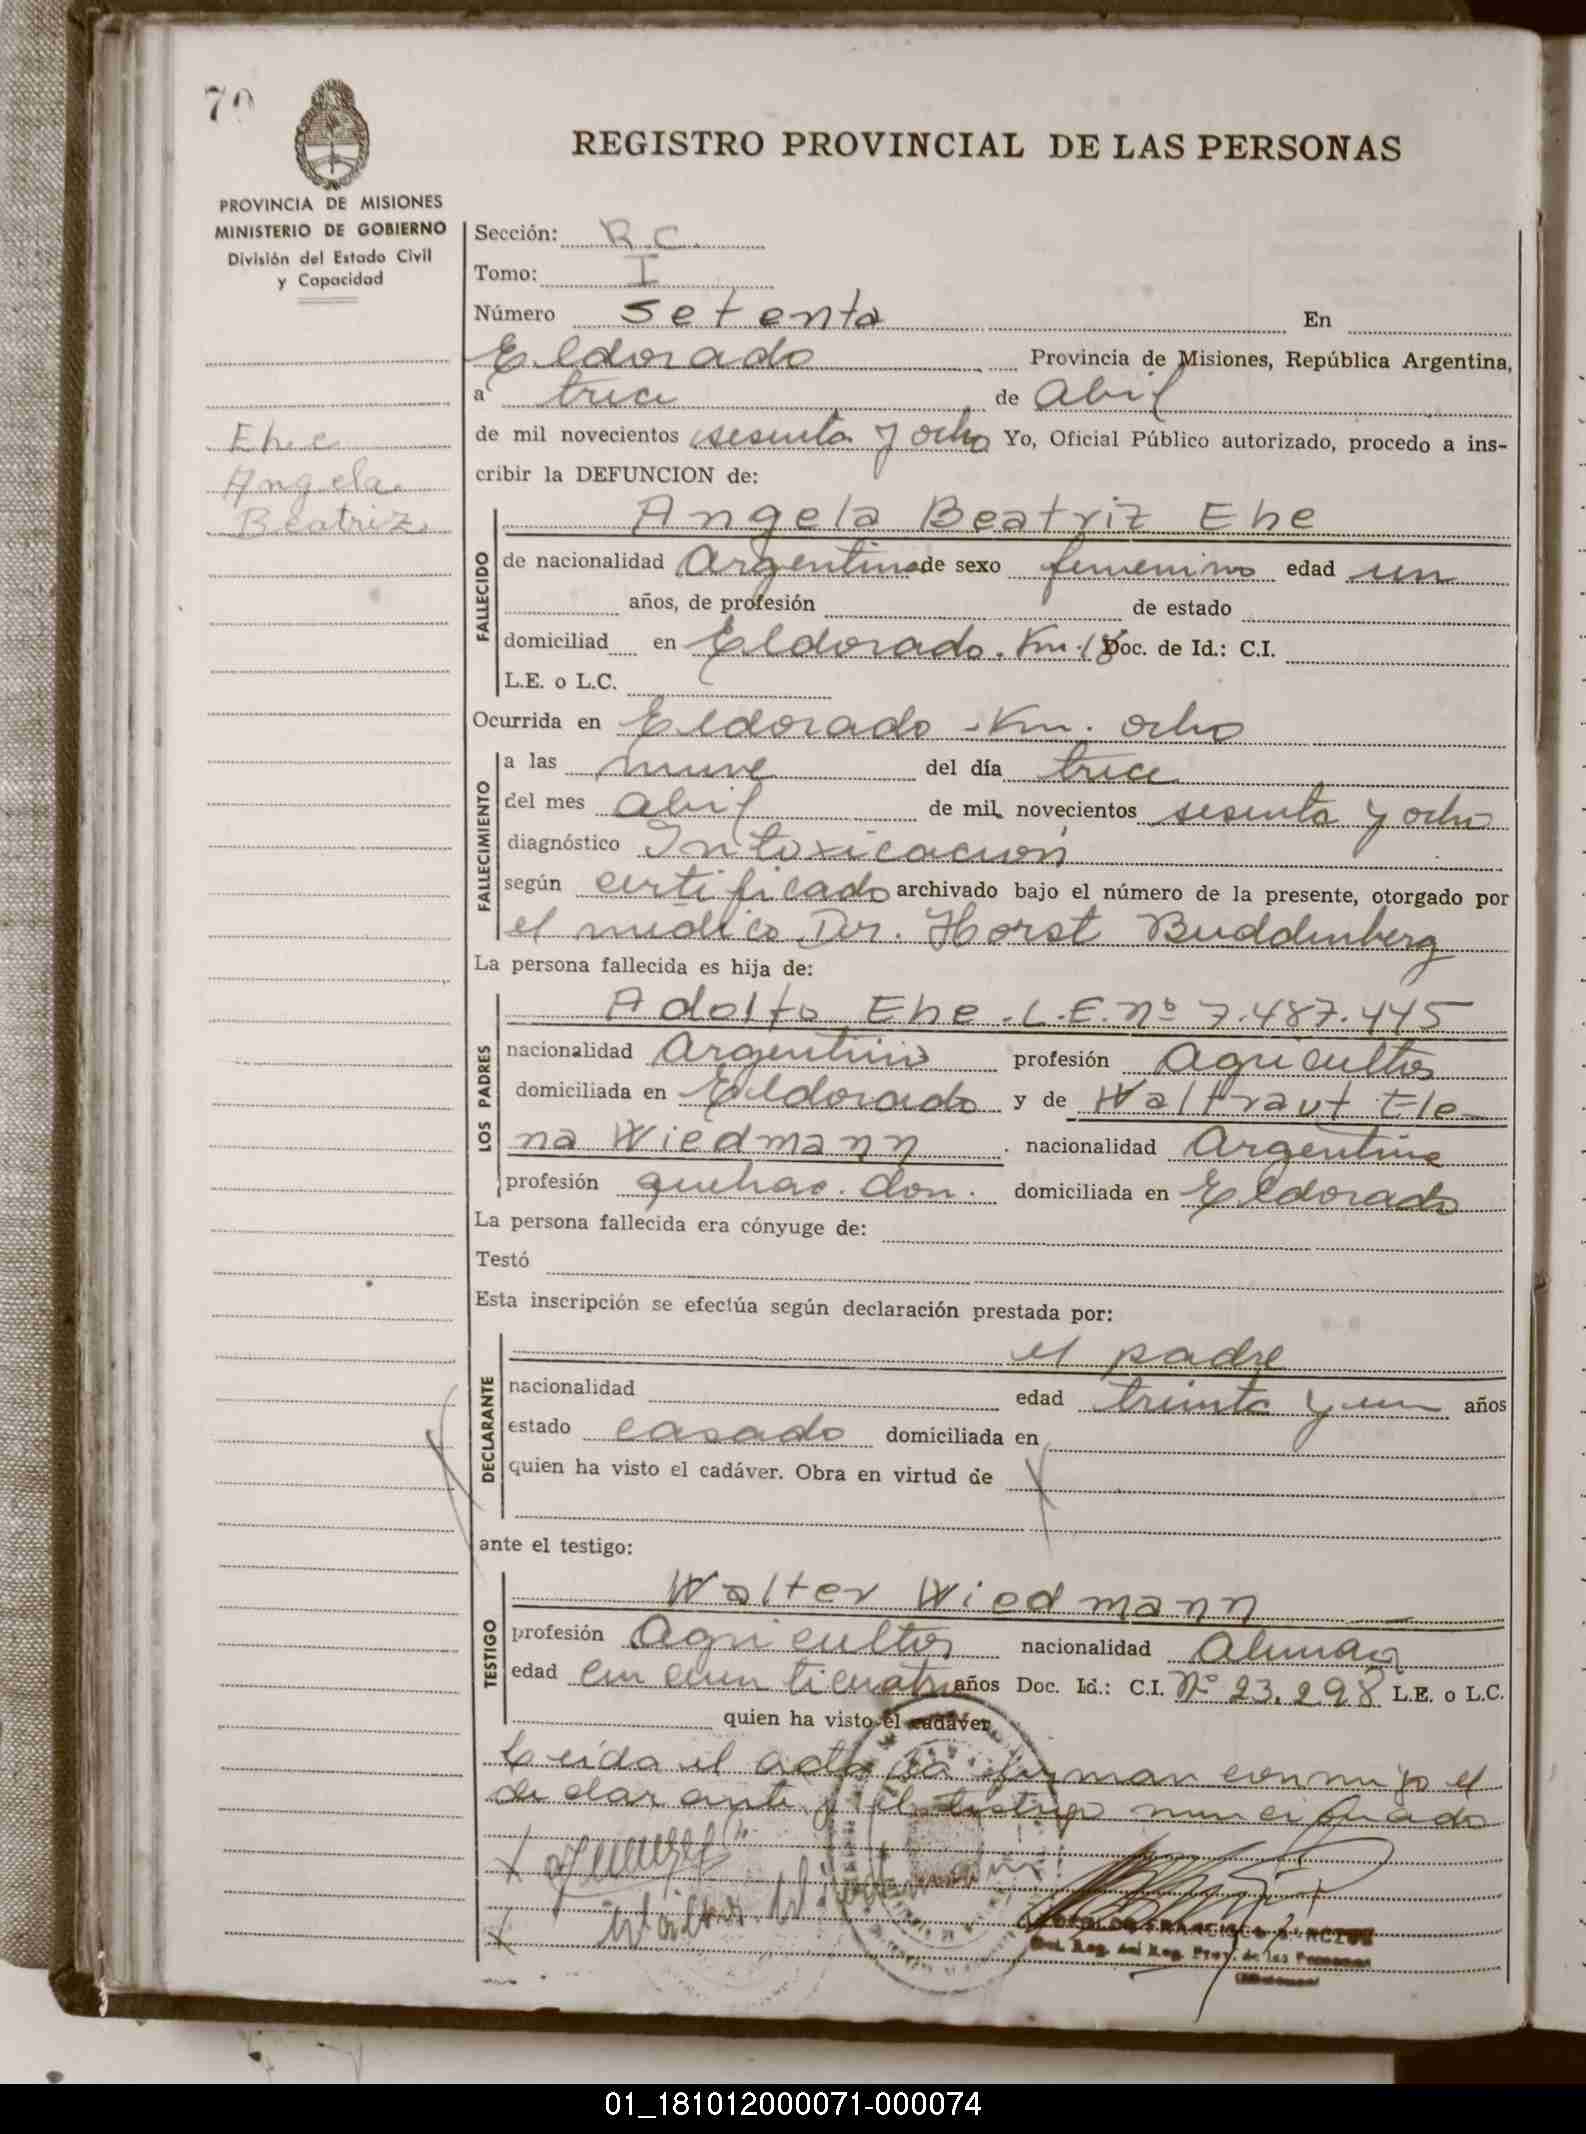 70
REGISTRO PROVINCIAL DE LAS PERSONAS
PROVINCIA DE MISIONES
MINISTERIO DE GOBIERNO
División del Estado Civil
y Capacidad
Sección: R.C.
Tomo: I
Número setenta En
Eldorado Provincia de Misiones, República Argentina,
a trece de abril
de mil novecientos sesenta y ocho Yo, Oficial Público autorizado, procedo a ins-
cribir la DEFUNCION de:
Ehe
Angela
Beatriz
Angela Beatriz Ehe
FALLECIDO
de nacionalidad Argentina de sexo femenino edad un
años, de profesión de estado
domiciliad en Eldorado. Km. 18 Doc. de Id.: C.I.
L.E. o L.C.
Ocurrida en Eldorado - Km. ocho
FALLECIMIENTO
a las nueve del día trece
del mes abril de mil novecientos sesenta y ocho
diagnóstico Intoxicación
según certificado archivado bajo el número de la presente, otorgado por
el médico Dr. Horst Buddenberg
La persona fallecida es hija de:
LOS PADRES
Adolfo Ehe. L.E. nº 7.487.445
nacionalidad Argentino profesión agricultor
domiciliada en Eldorado y de Waltraut Ele-
na Wiedmann. nacionalidad Argentina
profesión quehac. dom. domiciliada en Eldorado
La persona fallecida era cónyuge de:
Testó
Esta inscripción se efectúa según declaración prestada por:
DECLARANTE
el padre
nacionalidad edad treinta y un años
estado casado domiciliada en
quien ha visto el cadáver. Obra en virtud de
ante el testigo:
TESTIGO
Walter Wiedmann
profesión Agricultor nacionalidad Alemana
edad cincuenticuatro años Doc. Id.: C.I. Nº 23.298 L.E. o L.C.
quien ha visto el cadáver
Leída el acta la firman conmigo el
declarante y el testigo mencionado
Walter Wiedmann
FRANCISCO
Reg. del Reg. Prov. de las Personas
01_181012000071-000074